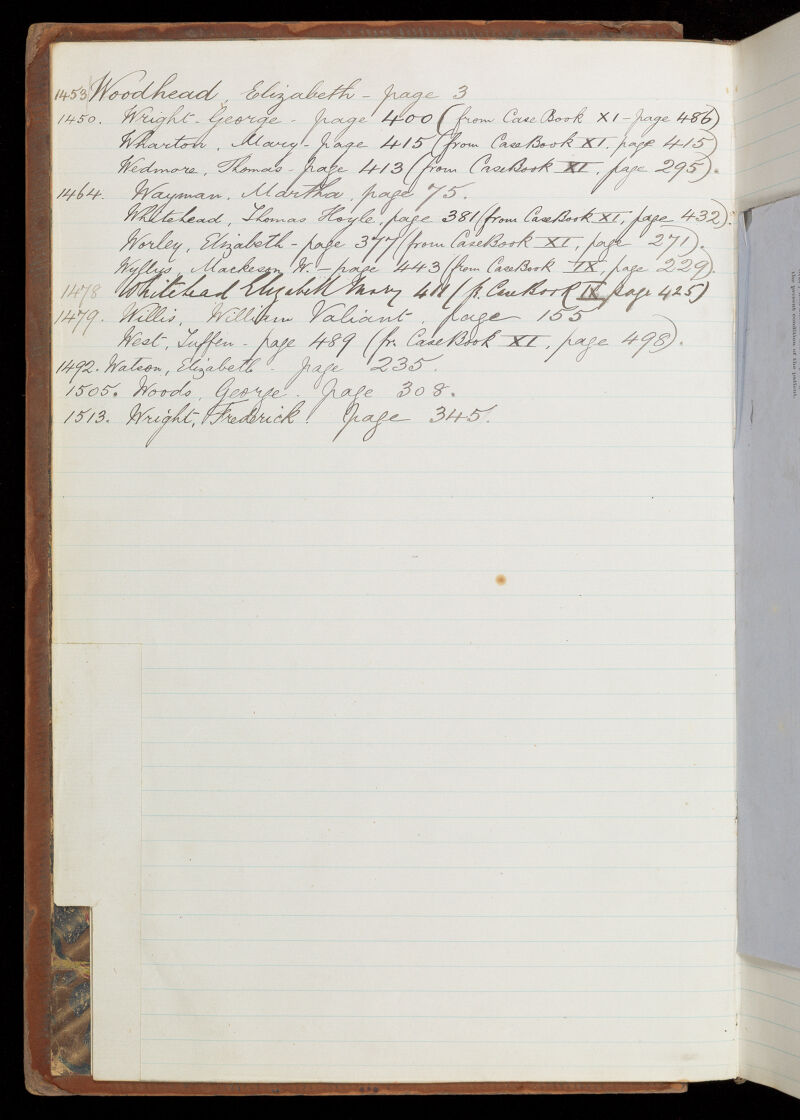 1453 Woodhead, Elizabeth - page 3
1450. Wright - George - page 400 (from Case Book XI - page 486)
Wharton, Mary - page 415 (from Case Book XI, page 415)
Wedmore, Thomas - page 413 (from Case Book XI, page 295).
1464. Wayman, Martha, page 75.
Whitehead, Thomas Hoyle. page 381 (from Case Book XI, page 432).
Worley, Elizabeth - page 377 (from Case Book XI, page 271).
Wyllys, Mackeson W. - page 443 (from Case Book IX, page 229).
1478 Whitehead Elizabeth Mary 411 (fr. Case Book IX, page 425)
1479. Willis, William Valiant, page 155
West, Tuffen - page 489 (fr. Case Book XI, page 498).
1492. Watson, Elizabeth - page 235.
1505. Woods, George. page 308.
1513. Wright, Frederick. page 345.
the present condition of the patient.